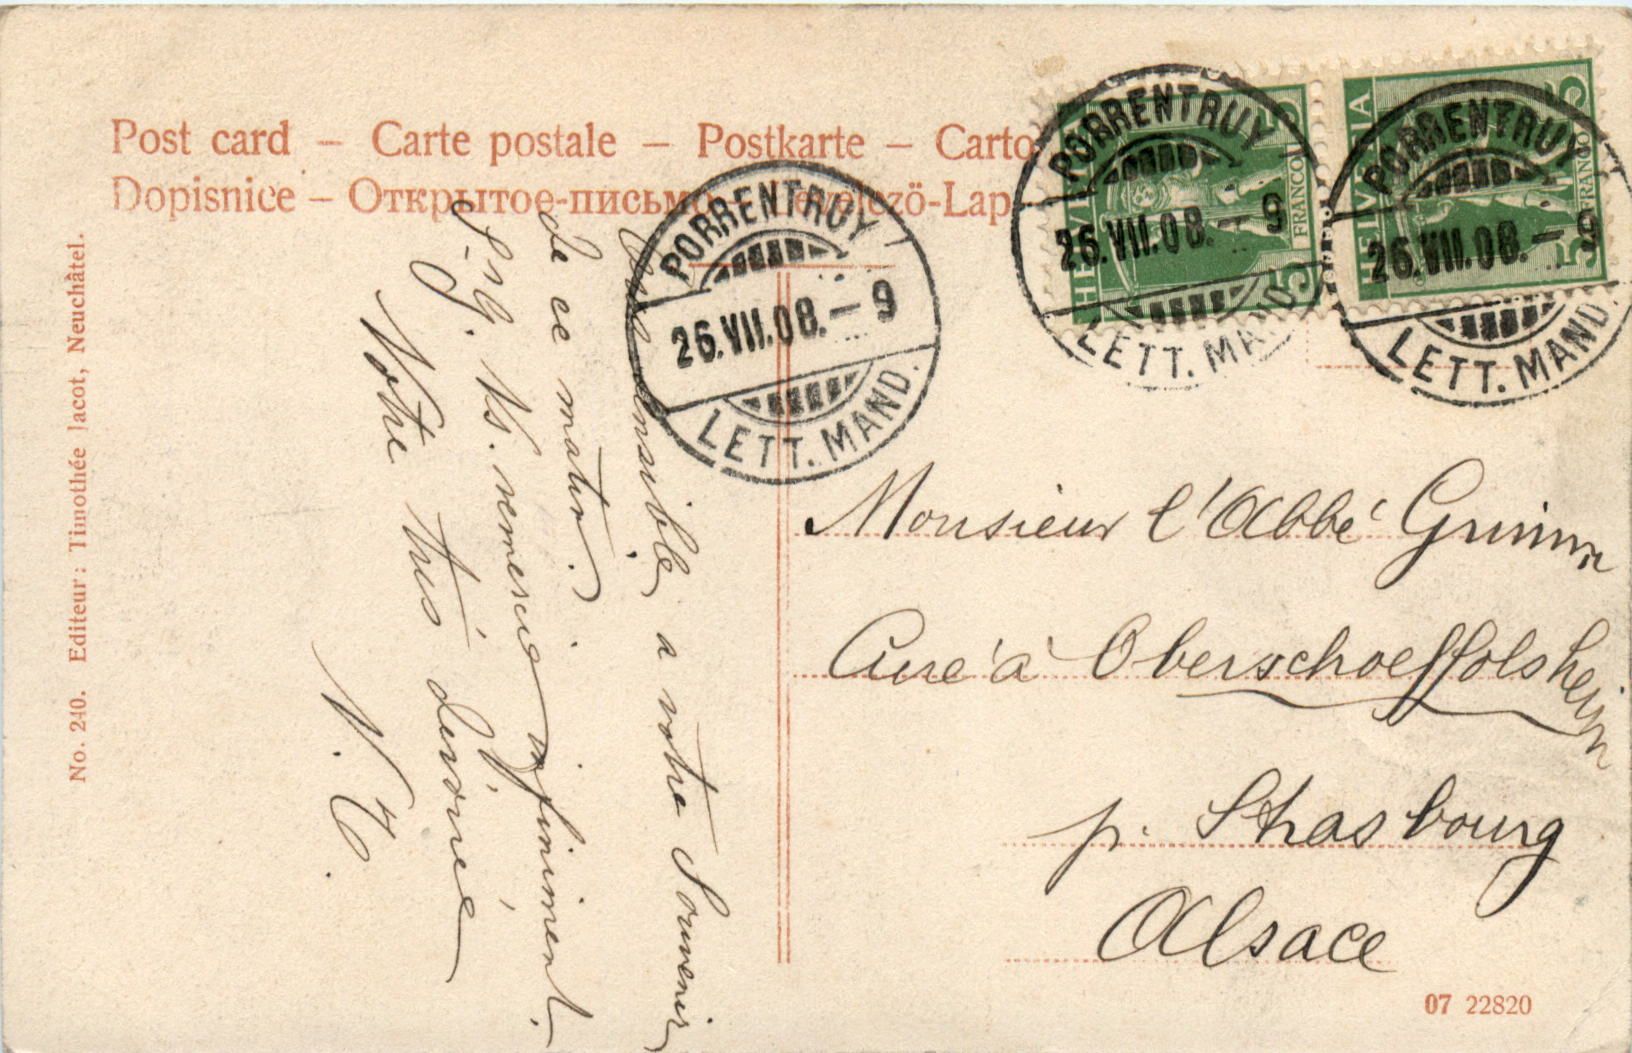 Post card – Carte postale – Postkarte – Carto
Dopisnice – Открытое-письмо – Levelezö-Lap
No. 240. Editeur: Timothée Jacot, Neuchâtel.
HELVETIA
5
5
FRANCO
HELVETIA
5
5
FRANCO
PORRENTRUY
26.VII.08.–9
LETT. MAND.
PORRENTRUY
26.VII.08.–9
LETT. MAND.
PORRENTRUY
26.VII.08.–9
LETT. MAND.
sensible a votre Souvenir
de ce matin.
remercie infiniment.
Votre très dévouée
Monsieur l'Abbé Grimm
Curé à Oberschoeffolsheim
p. Strasbourg
Alsace
07 22820